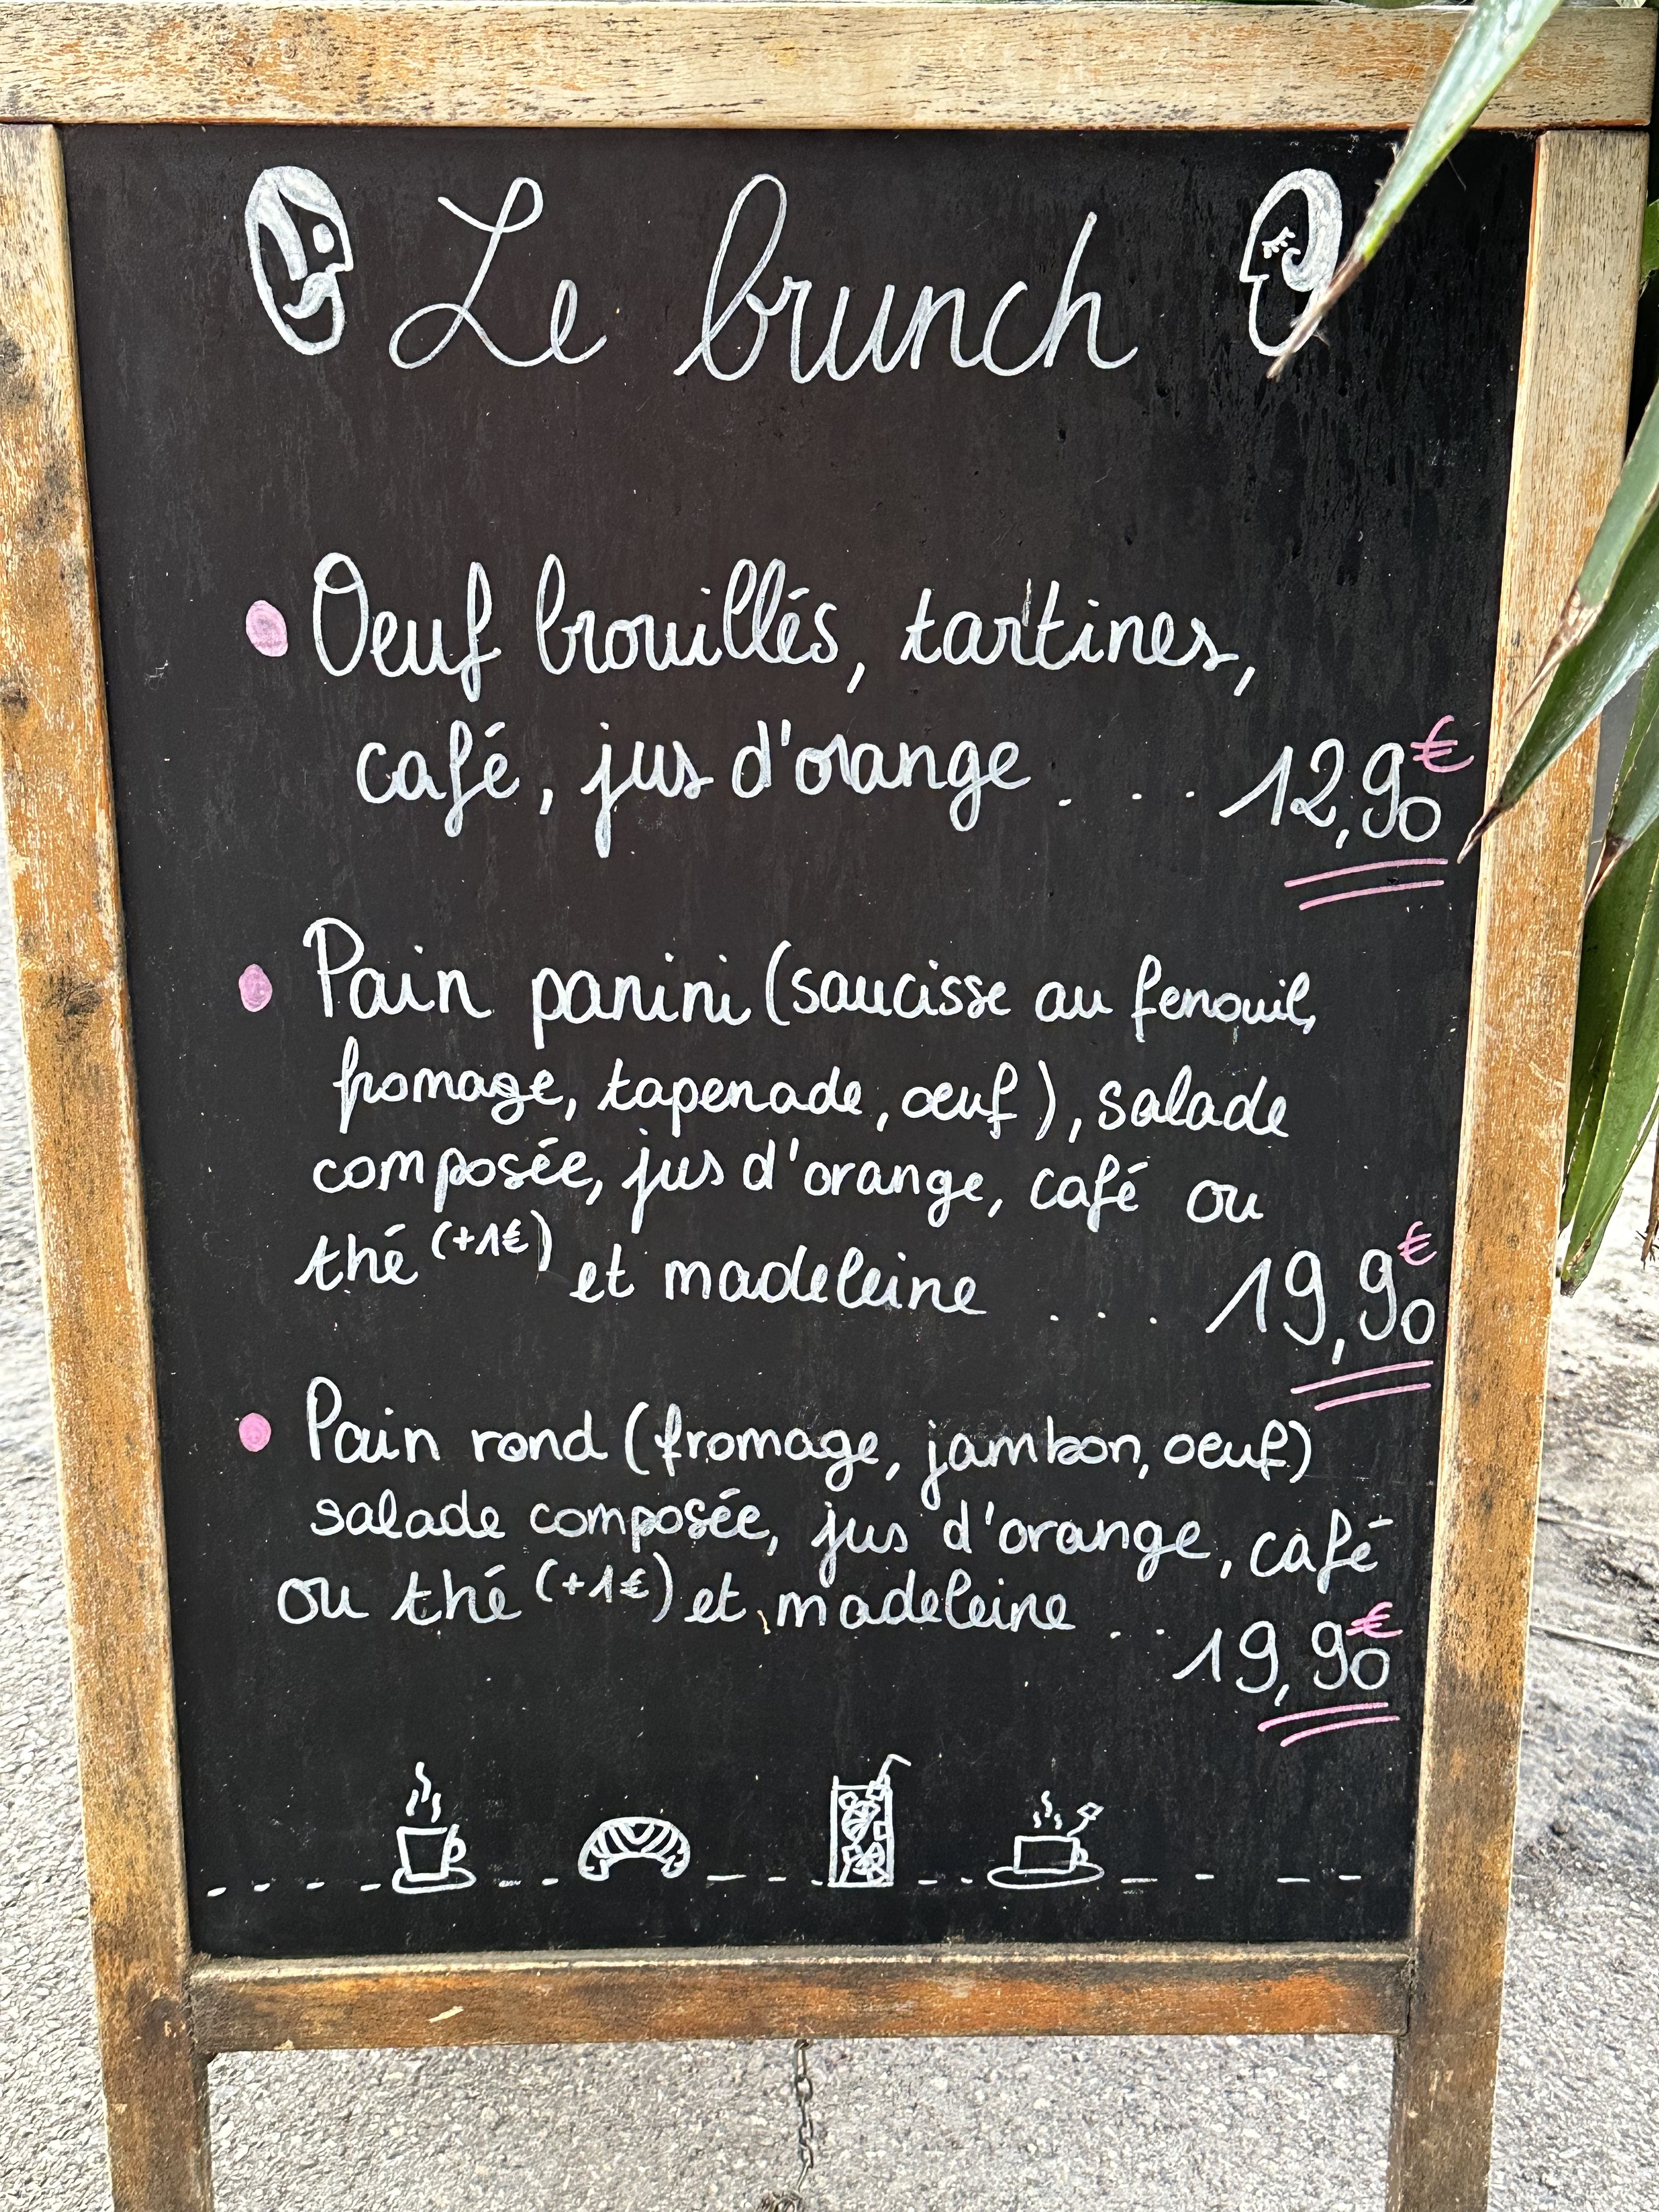 Le brunch
Oeuf brouillés, tartines,
café, jus d'orange . . . 12,90€
Pain panini (saucisse au fenouil,
fromage, tapenade, œuf), salade
composée, jus d'orange, café ou
thé (+1€) et madeleine . . . 19,90€
Pain rond (fromage, jambon, oeuf)
salade composée, jus d'orange, café
ou thé (+1€) et madeleine . . . 19,90€